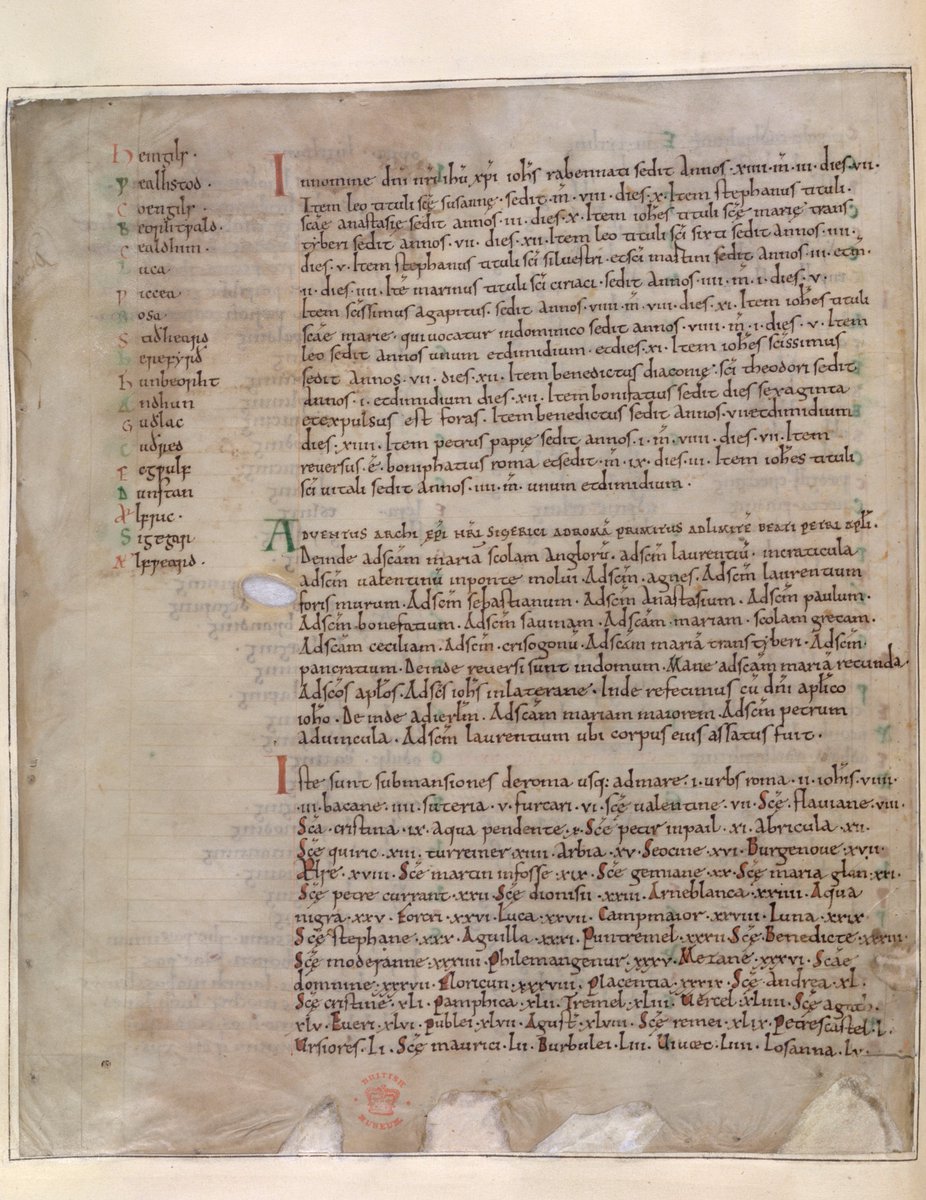 Hemgils.
Ƿealhstod.
Coengils.
Beorhtƿald.
Cealdhun.
Luca
Ƿiccea
Bosa
Stiðheard
Hereferð
Hunbeorht
Andhun
Guðlac
Cuðred
Ecgƿulf
Dunstan
Ælfric.
Sigegar
Ælfƿeard.
In nomine dnī nrī ihū xpī iohs̄ rabennati sedit Annos .xiiii. m̄ .iii. dies .vii.
Item leo tituli scę̄ susannę. sedit .m̄. viii. dies .x. Item stephanus tituli.
scāe anastasię sedit annos .iii. dies .x. Item ioh̄es tituli scę̄ marię trans
tyberi sedit annos .vii. dies .xii. Item leo tituli scī sixti sedit annos .iii.
dies .v. Item stephanus tituli scī silvestri. et scī martini sedit Annos .iii. et m̄.
ii. dies .iiii. Ite marinus tituli scī ciriaci. sedit annos .iiii. m̄ .i. dies .v.
Item scīssimus agapitus. sedit annos .viiii. m̄ .viii. dies .xi. Item ioh̄es tituli
scāe marie. qui vocatur in dominico sedit annos .viiii. m̄ .i. dies .v. Item
leo sedit annos unum et dimidium. et dies .xi. Item ioh̄es scīssimus
sedit Annos .vii. dies .xii. Item benedictus diaconię. scī theodori sedit
annos .i. et dimidium dies .xii. Item bonifatius sedit dies sexaginta
et expulsus est foras. Item benedictus sedit annos .vii. et dimidium
dies .xiiii. Item petrus papię sedit annos .i. m̄ .viiii. dies .vii. Item
reversus .ē. boniphatius roma et sedit .m̄. ix. dies .iii. Item ioh̄es tituli
scī vitali sedit annos .iiii. m̄. unum et dimidium.
ADVENTUS ARCHI EPĪ NRĪ SIGERICI AD ROMĀ PRIMITUS AD LIMITĒ BEATI PETRI APLĪ.
Deinde ad scām mariā scolam Anglorū. ad scm̄ laurentiū. in craticula
ad scm̄ valentinū in ponte molui. Ad scm̄. agnes. Ad scm̄ laurentium
foris murum. Ad scm̄ sebastianum. Ad scm̄ Anastasium. Ad scm̄ paulum.
Ad scm̄ bonefatium. Ad scm̄ savinam. Ad scām mariam. scolam grecam.
Ad scām ceciliam. Ad scm̄. crisogonū. Ad scām mariā transtyberi. Ad scm̄
pancratium. Deinde reversi sunt in domum. Mane ad scām mariā rotunda.
Ad scōs aplōs. Ad scs̄ iohs̄ in laterane. Inde refecimus cū dnī aplīco
iohō. Deinde ad ierlm̄. Ad scām mariam maiorem. Ad scm̄ petrum
ad vincula. Ad scm̄ laurentium ubi corpus eius assatus fuit.
Iste sunt submansiones de roma usq: ad mare .i. urbs roma .ii. ioh̄is .viiii.
.iii. bacane .iiii. suteria .v. furcari .vi. scę̄ valentine .vii. Scę̄. flaviane .viii.
Scā. cristina .ix. Aqua pendente .x. Scę̄ petir in pail .xi. Abricula .xii.
Scę̄ quiric .xiii. turreiner .xiiii. Arbia .xv. Seocine .xvi. Burgenove .xvii.
Ælse .xviii. Scę̄ martin in fosse .xix. Scę̄ gemiane .xx. Scę̄ maria glan .xxi.
Scę̄ petre currant .xxii. Scę̄ dionisii .xxiii. Arneblanca .xxiiii. Aqua
nigra .xxv. Forcri .xxvi. Luca .xxvii. Campmaior .xxviii. Luna .xxix.
Scę̄ stephane .xxx. Aguilla .xxxi. Puntremel .xxxii. Scę̄ Benedicte .xxxiii.
Scę̄ moderanne .xxxiiii. Philemangenur .xxxv. Metane .xxxvi. Scāe
domnine .xxxvii. Floricun .xxxviii. Placentia .xxxix. Scę̄ Andrea .xl.
Scę̄ cristine .xli. Pamphica .xlii. Tremel .xliii. Vercel .xliiii. Scę̄ agath.
xlv. Everi .xlvi. Publei .xlvii. Agust .xlviii. Scę̄ remei .xlix. Petrescastel .l.
Ursiores .Li. Scę̄ maurici .Lii. Burbulei .Liii. Vivæc .Liiii. Losanna .Lv.
BRITISH
MUSEUM